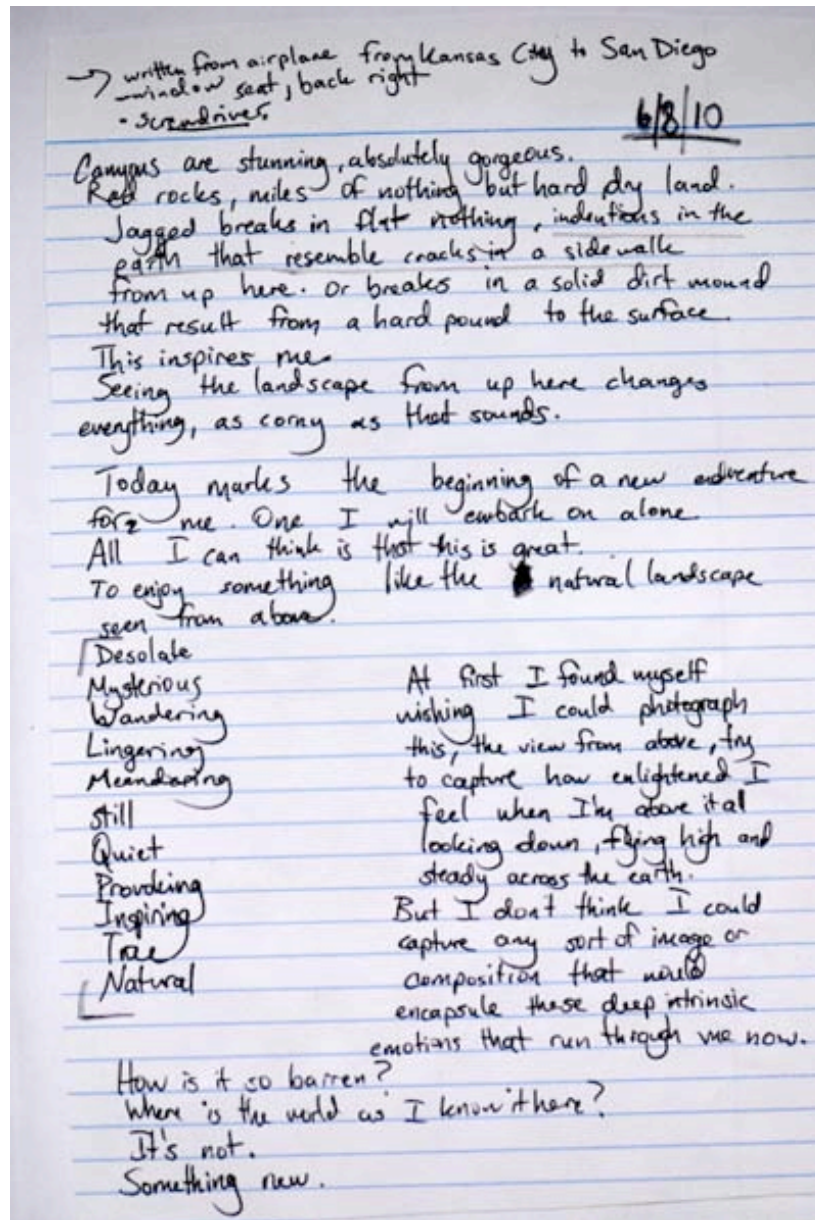 → written from airplane from Kansas City to San Diego
- window seat, back right
• screwdriver.
6/8/10
Canyons are stunning, absolutely gorgeous.
Red rocks, miles of nothing but hard dry land.
Jagged breaks in flat nothing, indentions in the
earth that resemble cracks in a sidewalk
from up here. Or breaks in a solid dirt mound
that result from a hard pound to the surface.
This inspires me.
Seeing the landscape from up here changes
everything, as corny as that sounds.
Today marks the beginning of a new adventure
for me. One I will embark on alone.
All I can think is that this is great.
To enjoy something like the natural landscape
seen from above.
Desolate
Mysterious
Wandering
Lingering
Meandaring
still
Quiet
Provoking
Inspiring
True
Natural
At first I found myself
wishing I could photograph
this, the view from above, try
to capture how enlightened I
feel when I'm above it al
looking down, flying high and
steady across the earth.
But I don't think I could
capture any sort of image or
composition that would
encapsule these deep intrinsic
emotions that run through me now.
How is it so barren?
Where is the world as I know it here?
It's not.
Something new.